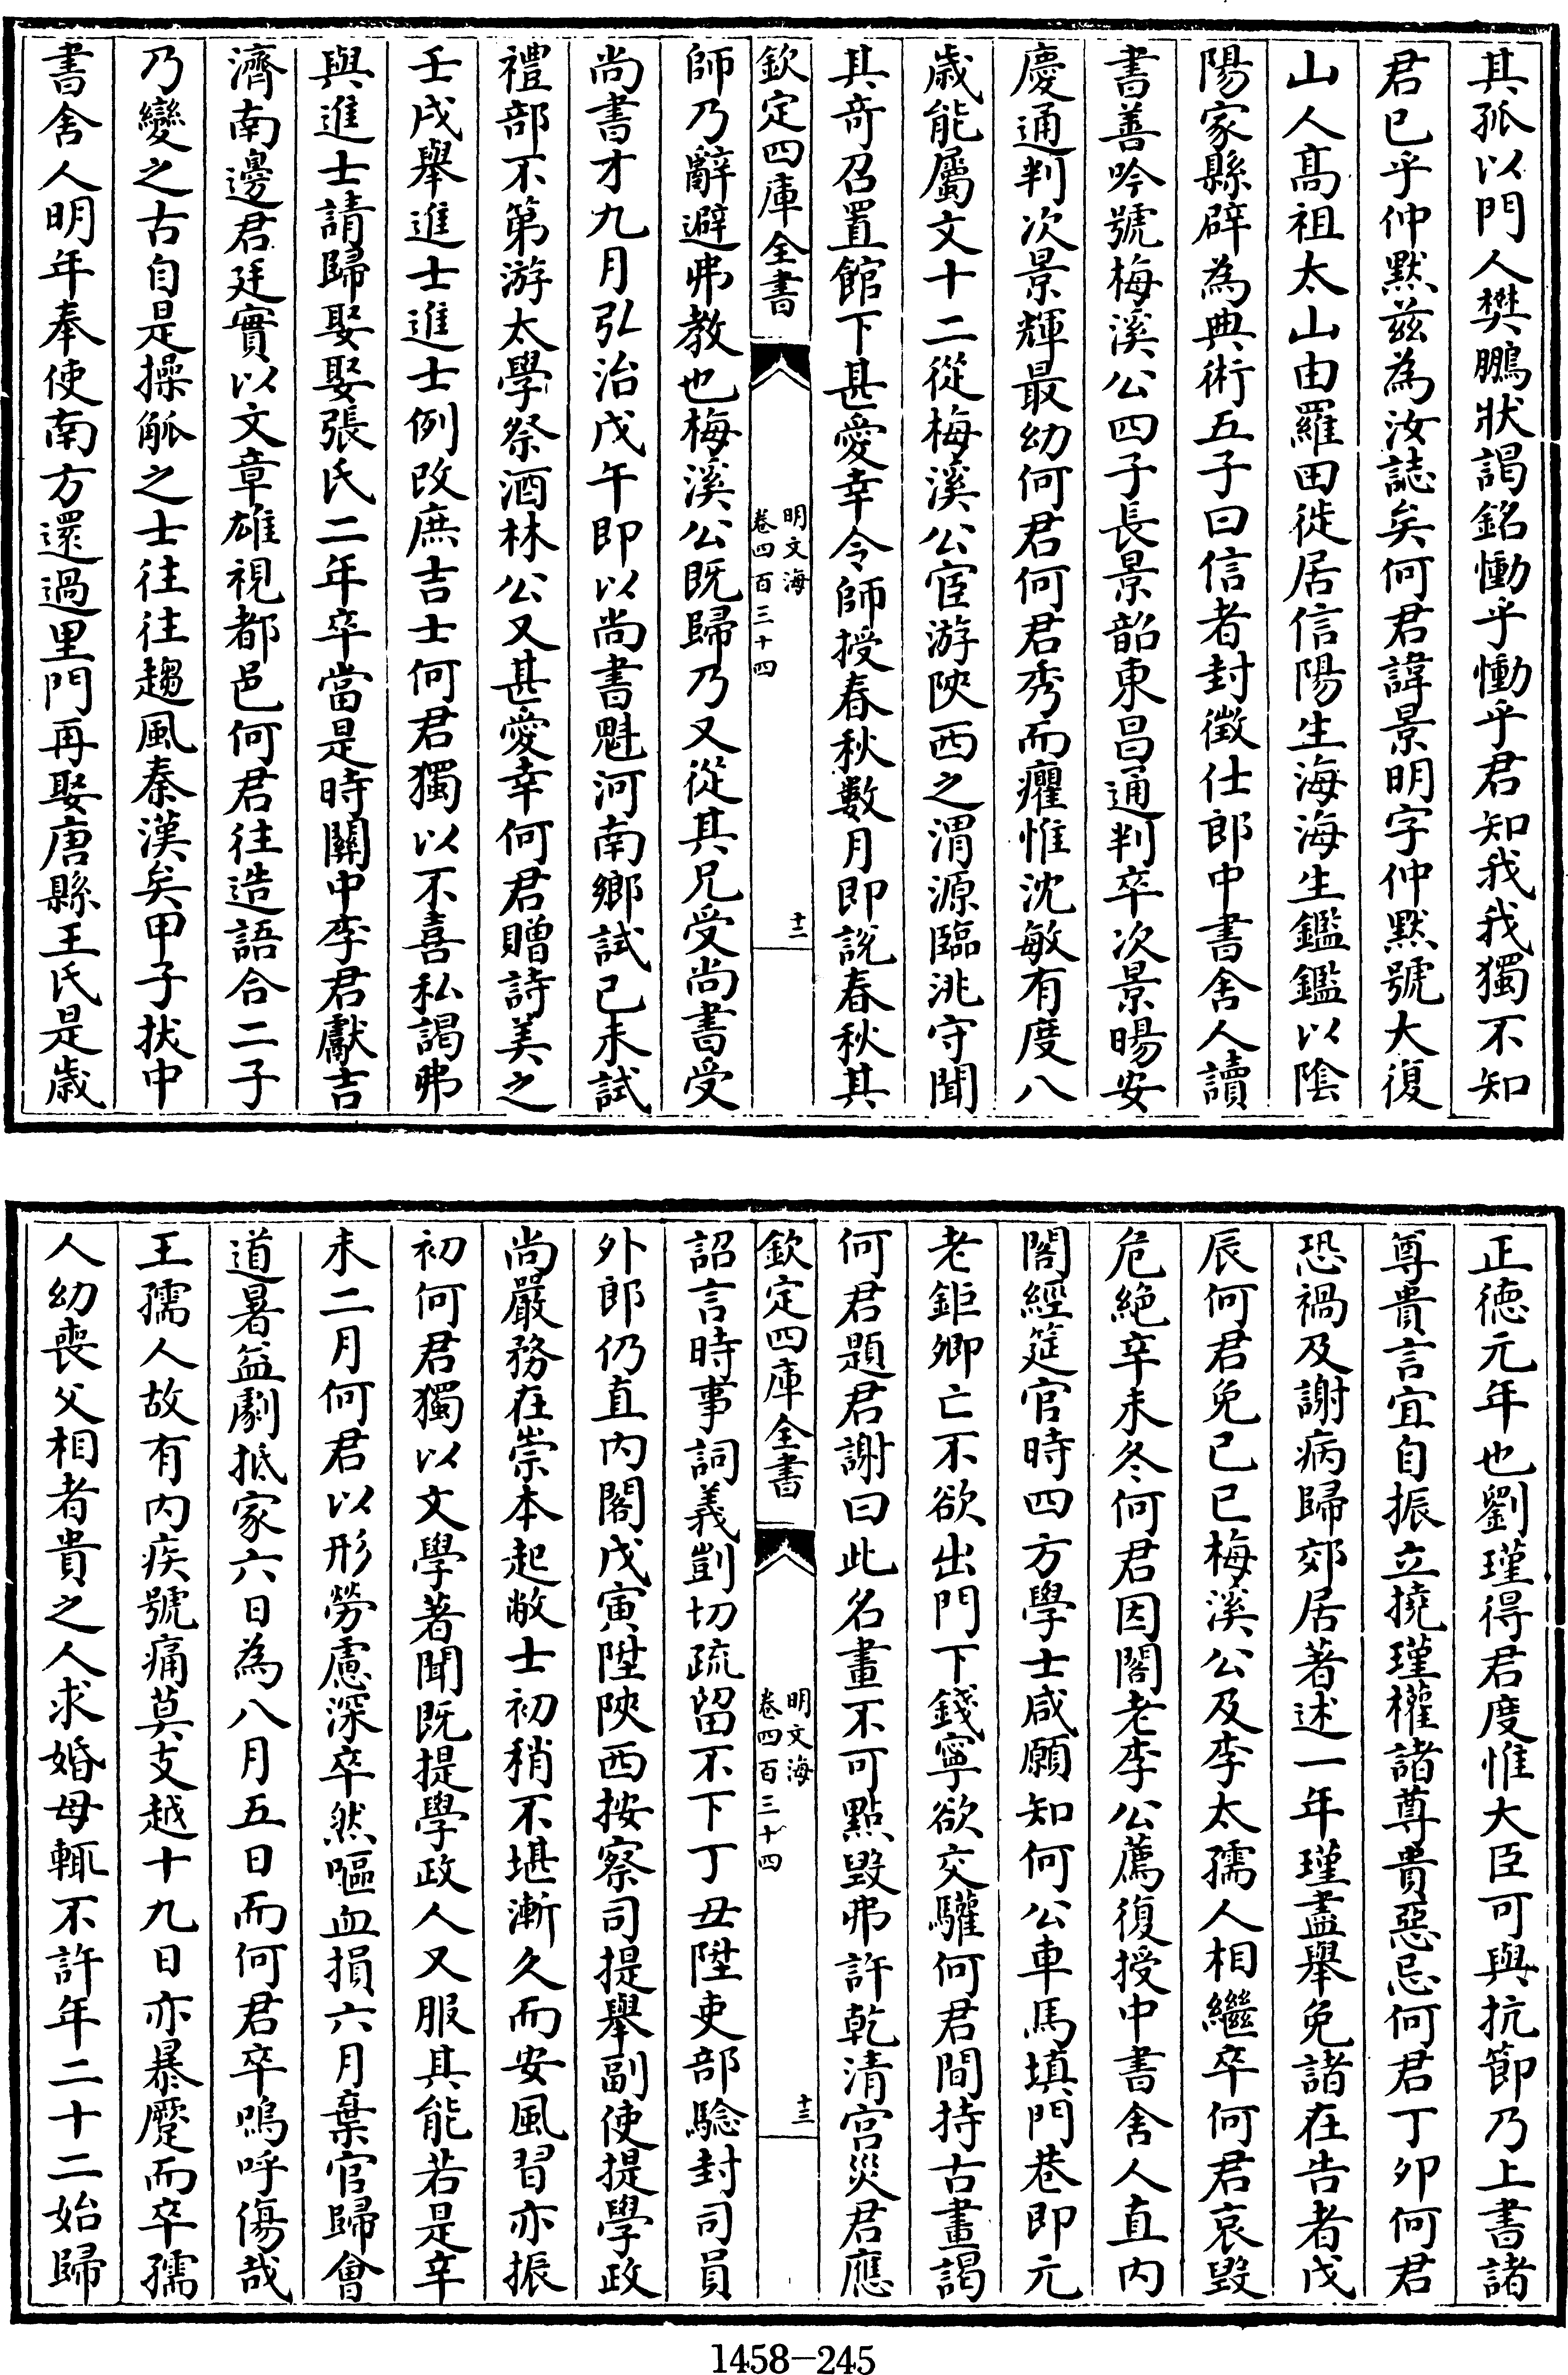 其孤以門人樊鵬狀謁銘慟乎慟乎君知我我獨不知
君已乎仲黙兹為汝誌矣何君諱景明字仲黙號大復
山人髙祖太山由羅田徙居信陽生海海生鑑鑑以陰
陽家縣辟為典術五子曰信者封徵仕郎中書舍人讀
書善吟號梅溪公四子長景韶東昌通判卒次景暘安
慶通判次景輝最幼何君何君秀而癯惟沈敏有度八
歳能屬文十二從梅溪公宦游陜西之渭源臨洮守聞
其奇召置館下甚愛幸令師授春秋數月即說春秋其
欽定四庫全書
明文海
卷四百三十四
十二
師乃辭避弗教也梅溪公既歸乃又從其兄受尚書受
尚書才九月弘治戊午即以尚書魁河南鄉試己未試
禮部不第游太學祭酒林公又甚愛幸何君贈詩美之
壬戌舉進士進士例改庶吉士何君獨以不喜私謁弗
與進士請歸娶娶張氏二年卒當是時關中李君獻吉
濟南邊君廷實以文章雄視都邑何君往造語合二子
乃變之古自是操觚之士往往趨風秦漢矣甲子扰中
書舍人明年奉使南方還過里門再娶唐縣王氏是歳
正徳元年也劉瑾得君度惟大臣可與抗節乃上書諸
尊貴言宜自振立撓瑾權諸尊貴惡忌何君丁夘何君
恐禍及謝病歸郊居著述一年瑾盡舉免諸在告者戊
辰何君免已巳梅溪公及李太孺人相繼卒何君哀毁
危絶辛未冬何君因閣老李公薦復授中書舍人直内
閣經筵官時四方學士咸願知何公車馬填門巷即元
老鉅卿亡不欲出門下錢寧欲交驩何君間持古畫謁
何君題君謝曰此名畫不可點毁弗許乾清宫災君應
欽定四庫全書
明文海
卷四百三十四
十三
詔言時事詞義剴切疏留不下丁丑陞吏部騐封司員
外郎仍直内閣戊寅陞陜西按察司提舉副使提學政
尚嚴務在崇本起敝士初稍不堪漸久而安風習亦振
初何君獨以文學著聞既提學政人又服其能若是辛
未二月何君以形勞慮深卒然嘔血損六月棄官歸會
道暑益劇抵家六日為八月五日而何君卒嗚呼傷哉
王孺人故有内疾號痛莫支越十九日亦暴蹷而卒孺
人幼喪父相者貴之人求婚母輒不許年二十二始歸
1458-245